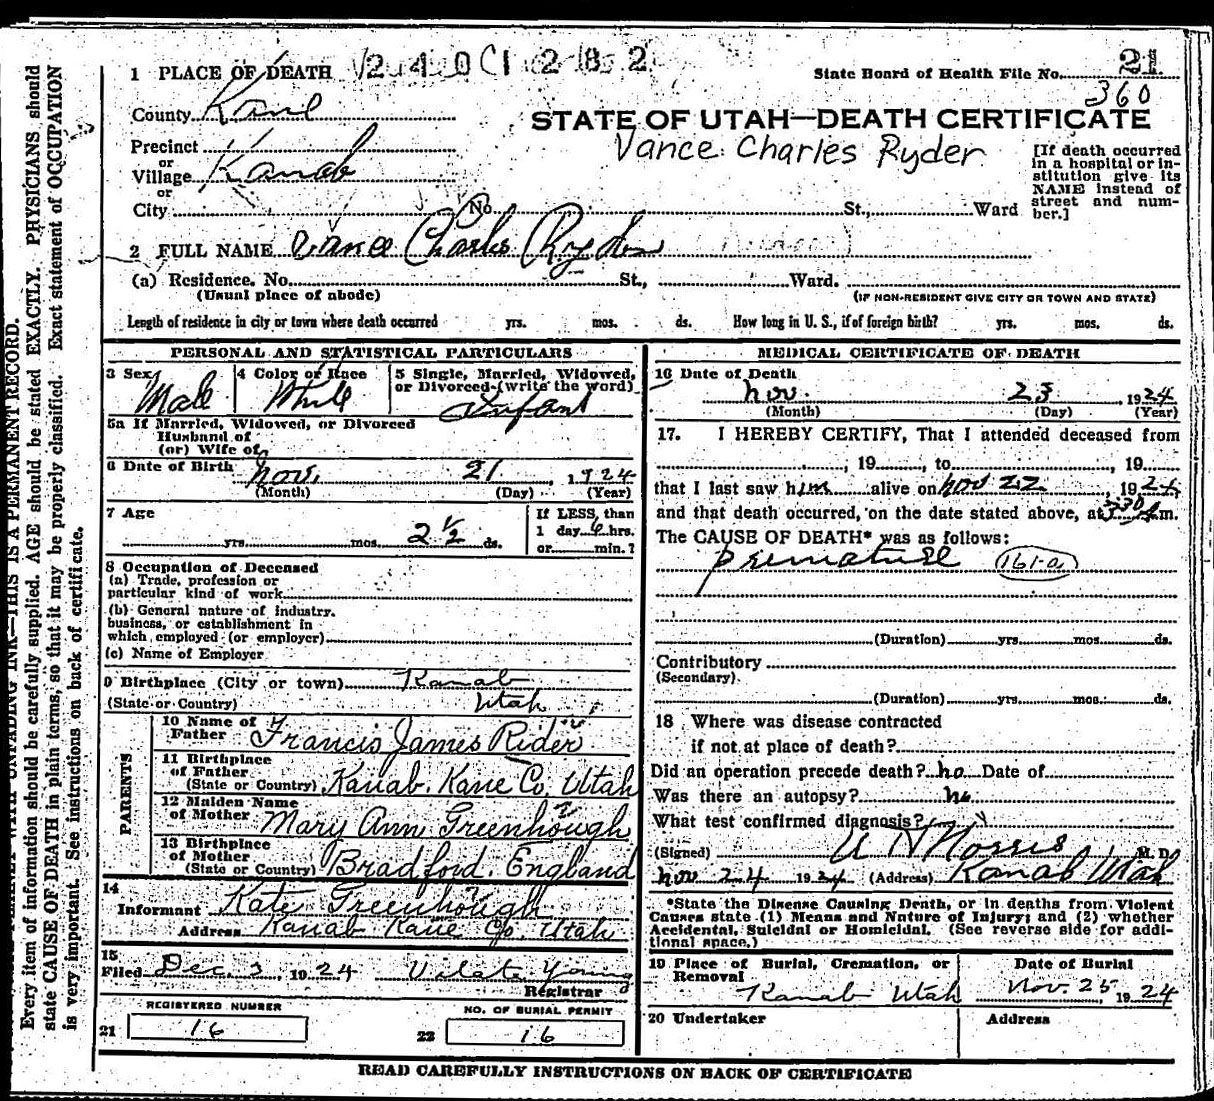 1 PLACE OF DEATH
2400I 282
State Board of Health File No. 21
360
County Kane
STATE OF UTAH—DEATH CERTIFICATE
Vance Charles Ryder
Precinct
or
Village Kanab
or
City No. St., Ward
[If death occurred
in a hospital or in-
stitution give its
NAME instead of
street and num-
ber.]
2 FULL NAME Vance Charles Ryder
(a) Residence. No. St., Ward.
(Usual place of abode)
(IF NON-RESIDENT GIVE CITY OR TOWN AND STATE)
Length of residence in city or town where death occurred yrs. mos. ds. How long in U. S., if of foreign birth? yrs. mos. ds.
PERSONAL AND STATISTICAL PARTICULARS
3 Sex Male
4 Color or Race White
5 Single, Married, Widowed,
or Divorced (write the word)
Infant
5a If Married, Widowed, or Divorced
Husband of
(or) Wife of
6 Date of Birth Nov. 21, 1924
(Month) (Day) (Year)
7 Age
yrs. mos. 2 1/2 ds.
If LESS than
1 day 6 hrs.
or min.?
8 Occupation of Deceased
(a) Trade, profession or
particular kind of work
(b) General nature of industry.
business, or establishment in
which employed (or employer)
(c) Name of Employer
9 Birthplace (City or town) Kanab
(State or Country) Utah
PARENTS
10 Name of
Father Francis James Rider
11 Birthplace
of Father
(State or Country) Kanab. Kane Co, Utah
12 Maiden Name
of Mother Mary Ann Greenhough
13 Birthplace
of Mother
(State or Country) Bradford. England
14
Informant Kate Greenhough
Address Kanab Kane Co, Utah
15
Filed Dec. 3 1924 Vilate Young
Registrar
REGISTERED NUMBER
21 16
NO. OF BURIAL PERMIT
22 16
MEDICAL CERTIFICATE OF DEATH
16 Date of Death
Nov. 23, 1924
(Month) (Day) (Year)
17. I HEREBY CERTIFY, That I attended deceased from
, 19, to, 19
that I last saw him alive on Nov 22, 1924
and that death occurred, on the date stated above, at 3:30 A m.
The CAUSE OF DEATH* was as follows:
premature 161-a
(Duration) yrs. mos. ds.
Contributory
(Secondary).
(Duration) yrs. mos. ds.
18 Where was disease contracted
if not at place of death?
Did an operation precede death? no Date of
Was there an autopsy? no
What test confirmed diagnosis?
(Signed) Norris M. D.
Nov 24 1924 (Address) Kanab Utah
*State the Disease Causing Death, or in deaths from Violent
Causes state (1) Means and Nature of Injury; and (2) whether
Accidental, Suicidal or Homicidal. (See reverse side for addi-
tional space.)
19 Place of Burial, Cremation, or
Removal
Kanab Utah
Date of Burial
Nov. 25, 1924
20 Undertaker
Address
READ CAREFULLY INSTRUCTIONS ON BACK OF CERTIFICATE
UNFADING INK—THIS IS A PERMANENT RECORD.
Every item of information should be carefully supplied. AGE should be stated EXACTLY. PHYSICIANS should
state CAUSE OF DEATH in plain terms, so that it may be properly classified. Exact statement of OCCUPATION
is very important. See instructions on back of certificate.